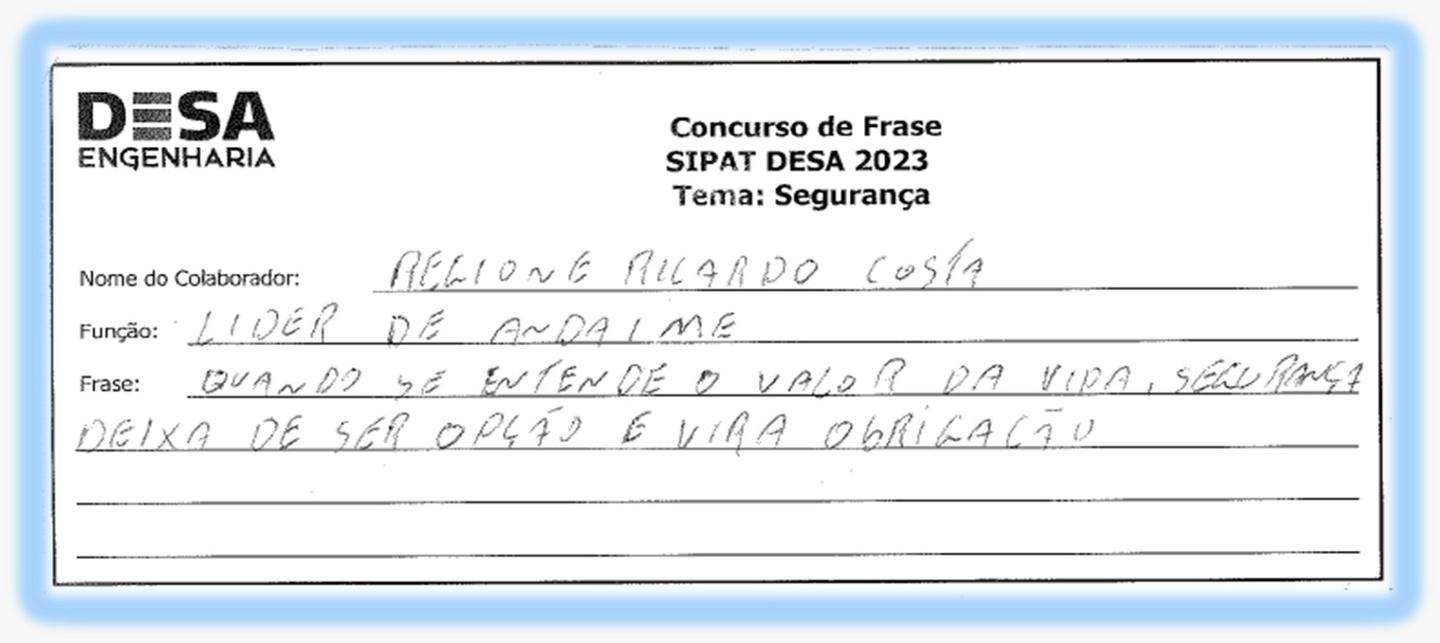 DESA
ENGENHARIA
Concurso de Frase
SIPAT DESA 2023
Tema: Segurança
Nome do Colaborador: REGIONE RICARDO COSTA
Função: LIDER DE ANDAIME
Frase: QUANDO SE ENTENDE O VALOR DA VIDA, SEGURANÇA
DEIXA DE SER OPÇÃO E VIRA OBRIGAÇÃO